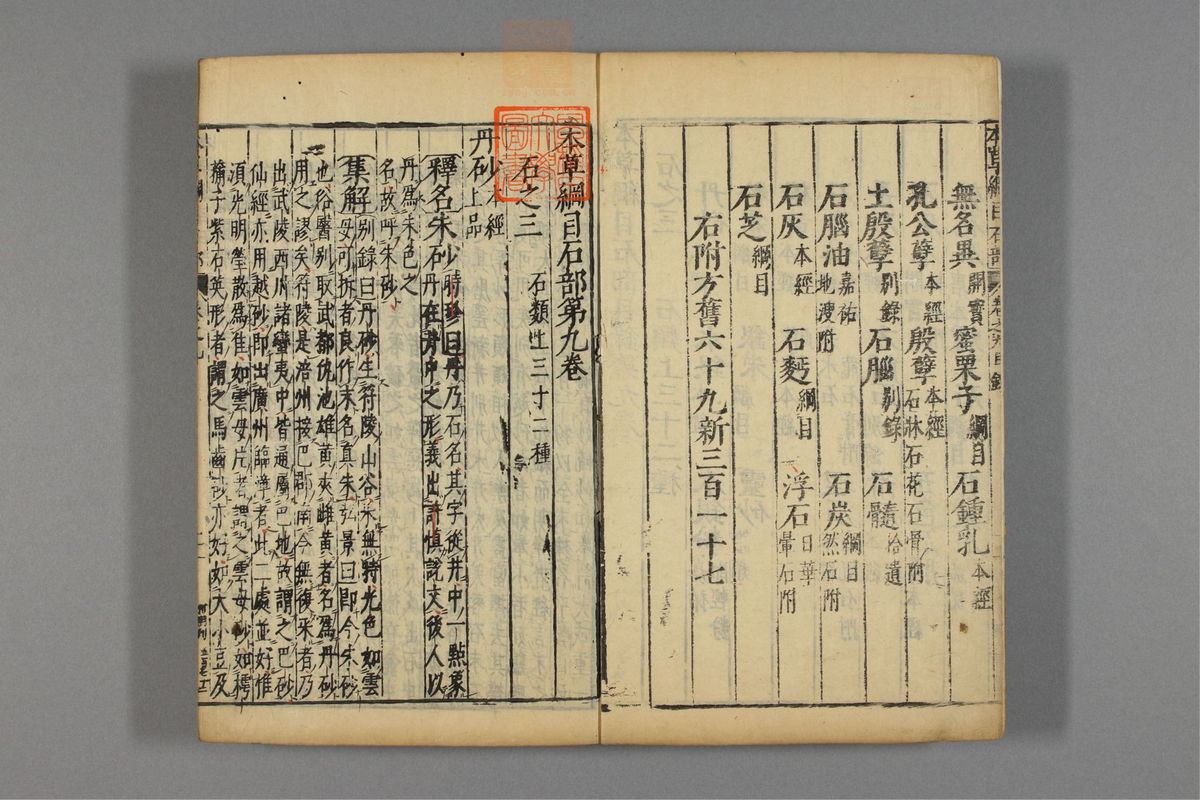 本草綱目石部
無名異開寶 蜜栗子綱目 石鍾乳本經
孔公孽本經 殷孽本經石牀石花石骨附
土殷孽別錄 石腦別錄 石髓拾遺
石腦油嘉祐地溲附 石炭綱目然石附
石灰本經 石麪綱目 浮石日華暈石附
石芝綱目
右附方舊六十九新三百一十七
本草綱目石部第九卷
石之三 石類性三十二種
丹砂本經上品
釋名朱砂時珍曰丹乃石名其字從井中一點象
丹在井中之形義出許慎說文後人以
丹爲朱色之
名故呼朱砂
集解別錄曰丹砂生符陵山谷采無時光色如雲
母可拆者良作末名真朱弘景曰即今朱砂
也俗醫別取武都仇池雄黃夾雌黃者名爲丹砂
用之謬矣符陵是涪州接巴郡南今無復采者乃
出武陵西川諸蠻夷中皆通屬巴地故謂之巴砂
仙經亦用越砂即出廣州臨漳者此二處並好惟
須光明瑩澈爲佳如雲母片者謂之雲母砂如樗
蒲子紫石英形者謂之馬齒砂亦好如大小豆及